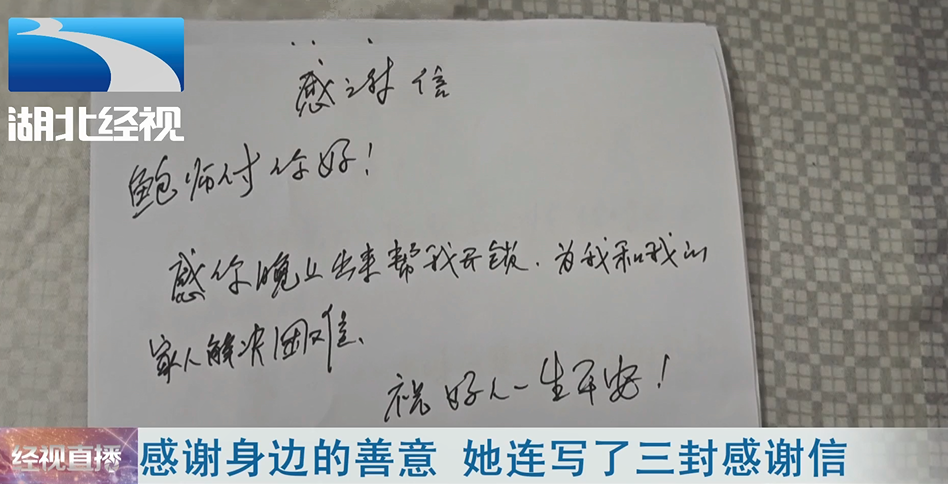 湖北经视
感谢信
鲍师付你好！
感你晚上出来帮我开锁．为我和我的
家人解决困难、
祝好人一生平安！
经视直播
感谢身边的善意 她连写了三封感谢信